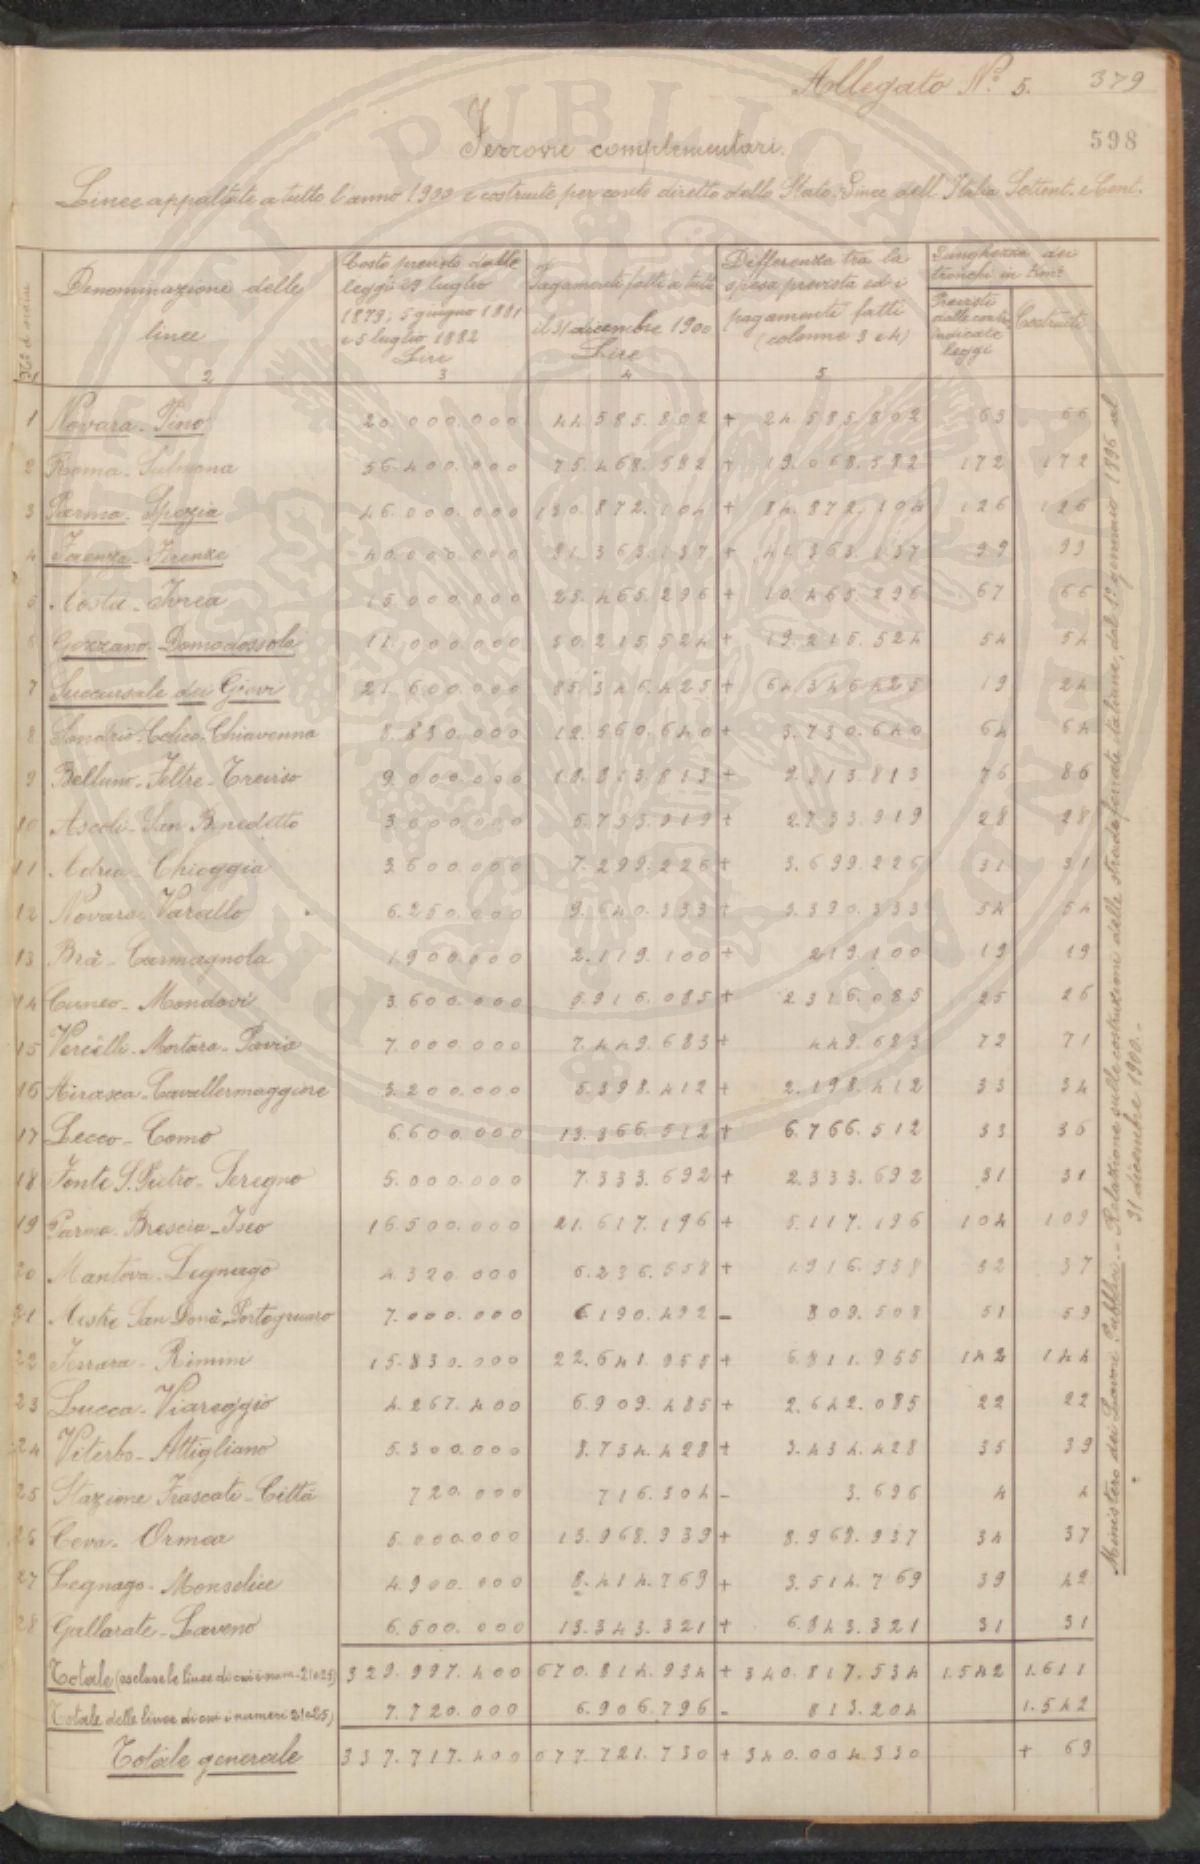 Allegato N.º 5. 379
598
Ferrovie complementari.
Linee appaltate a tutto l'anno 1900 e costruite per conto diretto dello Stato. Linee dell'Italia Settent. e Cent.
Nº d'ordine | Denominazione delle linee | Costo previsto dalle leggi 29 luglio 1879, 5 giugno 1881 e 5 luglio 1882 Lire | Pagamenti fatti a tutto il 31 dicembre 1900 Lire | Differenza tra la spesa prevista ed i pagamenti fatti (colonne 3 e 4) | Lunghezza dei tronchi in Kmº
Previsti dalle contro indicate leggi | Costruiti
1 2 3 4 5
1 Novara - Pino 20.000.000 44.585.802 + 24.585.802 63 66
2 Roma - Sulmona 56.400.000 75.468.582 + 19.068.582 172 172
3 Parma - Spezia 46.000.000 130.872.104 + 84.872.104 126 126
4 Faenza - Firenze 40.000.000 81.363.137 + 41.363.137 99 99
5 Aosta - Ivrea 15.000.000 25.465.296 + 10.465.296 67 66
6 Gozzano - Domodossola 11.000.000 30.215.524 + 19.215.524 54 54
7 Succursale dei Giovi 21.600.000 85.346.425 + 64.346.425 19 24
8 Sondrio - Colico - Chiavenna 8.830.000 12.560.640 + 3.730.640 64 64
9 Belluno - Feltre - Treviso 9.000.000 18.813.813 + 9.813.813 76 86
10 Ascoli - San Benedetto 3.000.000 5.733.919 + 2.733.919 28 28
11 Adria - Chioggia 3.600.000 7.299.226 + 3.699.226 31 31
12 Novara - Varallo 6.250.000 9.640.333 + 3.390.333 54 54
13 Brà - Carmagnola 1.900.000 2.119.100 + 219.100 19 19
14 Cuneo - Mondovì 3.600.000 5.916.085 + 2.316.085 25 26
15 Vercelli - Mortara - Pavia 7.000.000 7.449.683 + 449.683 72 71
16 Airasca - Cavallermaggiore 3.200.000 5.398.412 + 2.198.412 33 34
17 Lecco - Como 6.600.000 13.366.512 + 6.766.512 33 36
18 Ponte S. Pietro - Seregno 5.000.000 7.333.692 + 2.333.692 31 31
19 Parma - Brescia - Iseo 16.500.000 21.617.196 + 5.117.196 104 109
20 Mantova - Legnago 4.320.000 6.236.558 + 1.916.558 32 37
21 Mestre San Donà - Portogruaro 7.000.000 6.190.492 - 809.508 51 59
22 Ferrara - Rimini 15.830.000 22.641.955 + 6.811.955 142 144
23 Lucca - Viareggio 4.267.400 6.909.485 + 2.642.085 22 22
24 Viterbo - Attigliano 5.300.000 8.734.428 + 3.434.428 35 39
25 Stazione Frascati - Città 720.000 716.304 - 3.696 4 4
26 Ceva - Ormea 5.000.000 13.968.939 + 8.968.937 34 37
27 Legnago - Monselice 4.900.000 8.414.769 + 3.514.769 39 42
28 Gallarate - Laveno 6.500.000 13.343.321 + 6.843.321 31 31
Totale (escluse le linee di cui i num. 21 e 25) 329.997.400 670.814.934 + 340.817.534 1.542 1.611
Totale delle linee di cui i numeri 21 e 25) 7.720.000 6.906.796 - 813.204 1.542
Totale generale 337.717.400 677.721.730 + 340.004.330 + 69
Ministero dei Lavori Pubblici. - Relazione sulle costruzioni delle strade ferrate italiane, dal 1º gennaio 1896 al
31 dicembre 1900. -